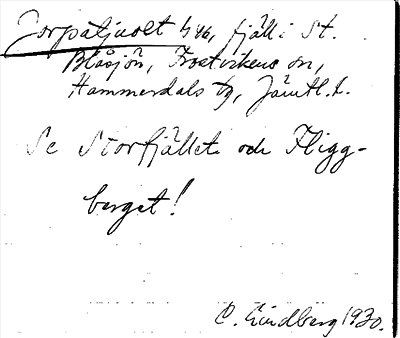 Jorpatjuolt 4/46, fjäll i St.
Blåsjön, Frostvikens sn,
Hammerdals tg, Jämtl. l.
Se Storfjället och Fligg-
berget!
C. Lindberg 1930.